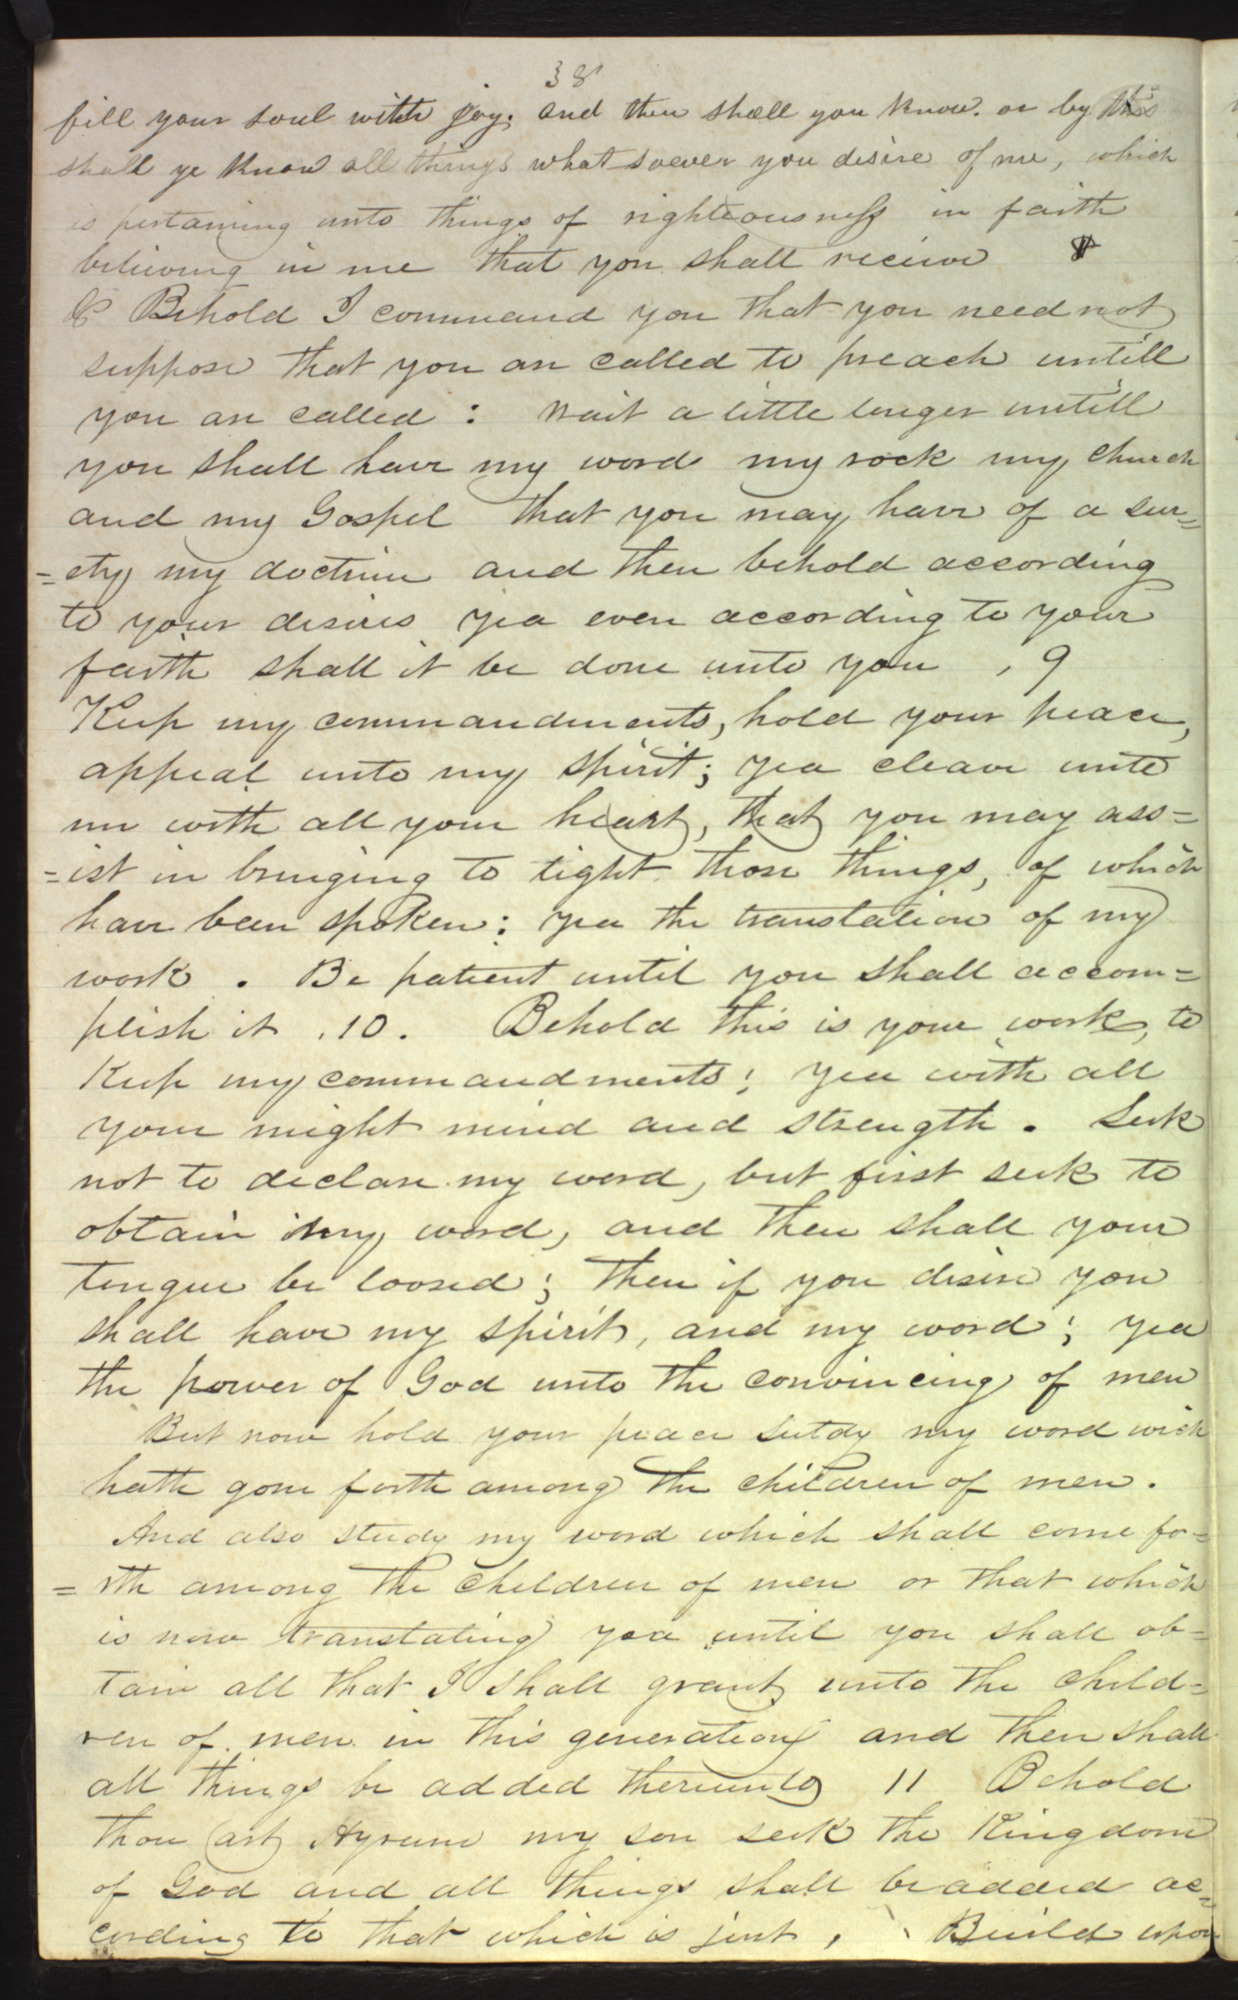 38
fill your soul with joy; and then shall you know. or by this
shall ye know all things whatsoever you desire of me, which
is pertaining unto things of righteousness in faith
believing in me that you shall receive 8
8 Behold I command you that you need not
suppose that you are called to preach untill
you are called : wait a little longer untill
you shall have my word my rock my church
and my Gospel that you may have of a sur=
=ety my doctrine and then behold according
to your desires yea even according to your
faith shall it be done unto you , 9
Keep my commandments, hold your peace,
appeal unto my spirit; yea cleave unto
me with all your heart, that you may ass=
=ist in bringing to light those things, of which
have been spoken: yea the translation of my
work . Be patient until you shall accom=
plish it .10. Behold this is your work, to
Keep my commandments; yea with all
your might mind and strength . Seek
not to declare my word, but first seek to
obtain my word, and then shall your
tongue be loosed; then if you desire you
shall have my spirit, and my word; yea
the power of God unto the convincing of men
But now hold your peace sutdy my word wich
hath gone forth among the children of men .
And also study my word which shall come fo=
=rth among the children of men or that which
is now translating yea until you shall ob=
tain all that I shall grant unto the child=
ren of men in this generation and then shall
all things be added thereunto 11 Behold
thou art Hyrum my son seek the Kingdom
of God and all things shall be added ac=
cording to that which is just , Build upon